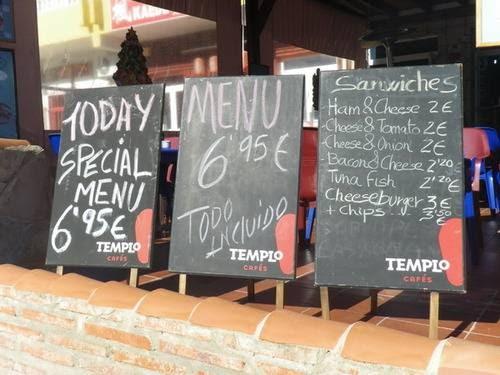 TODAY
SPECIAL
MENU
6'95€
TEMPLO
CAFÉS
MENU
6'95€
TODO
INCLUIDO
TEMPLO
CAFÉS
Sanwiches
Ham & Cheese 2€
Cheese & Tomato 2€
Cheese & Onion 2€
Bacon & Cheese 2'20
Tuna Fish 2'20€
Cheeseburger 3€
+ Chips 3'50€
TEMPLO
CAFÉS